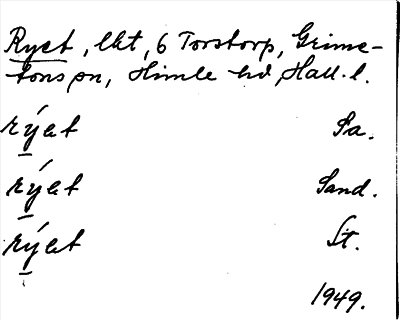 Ryet, lht, 6 Torstorp, Grime-
tons sn, Himle hd, Hall. l.
rýet Pa.
rýet Sand.
rýet St.
1949.